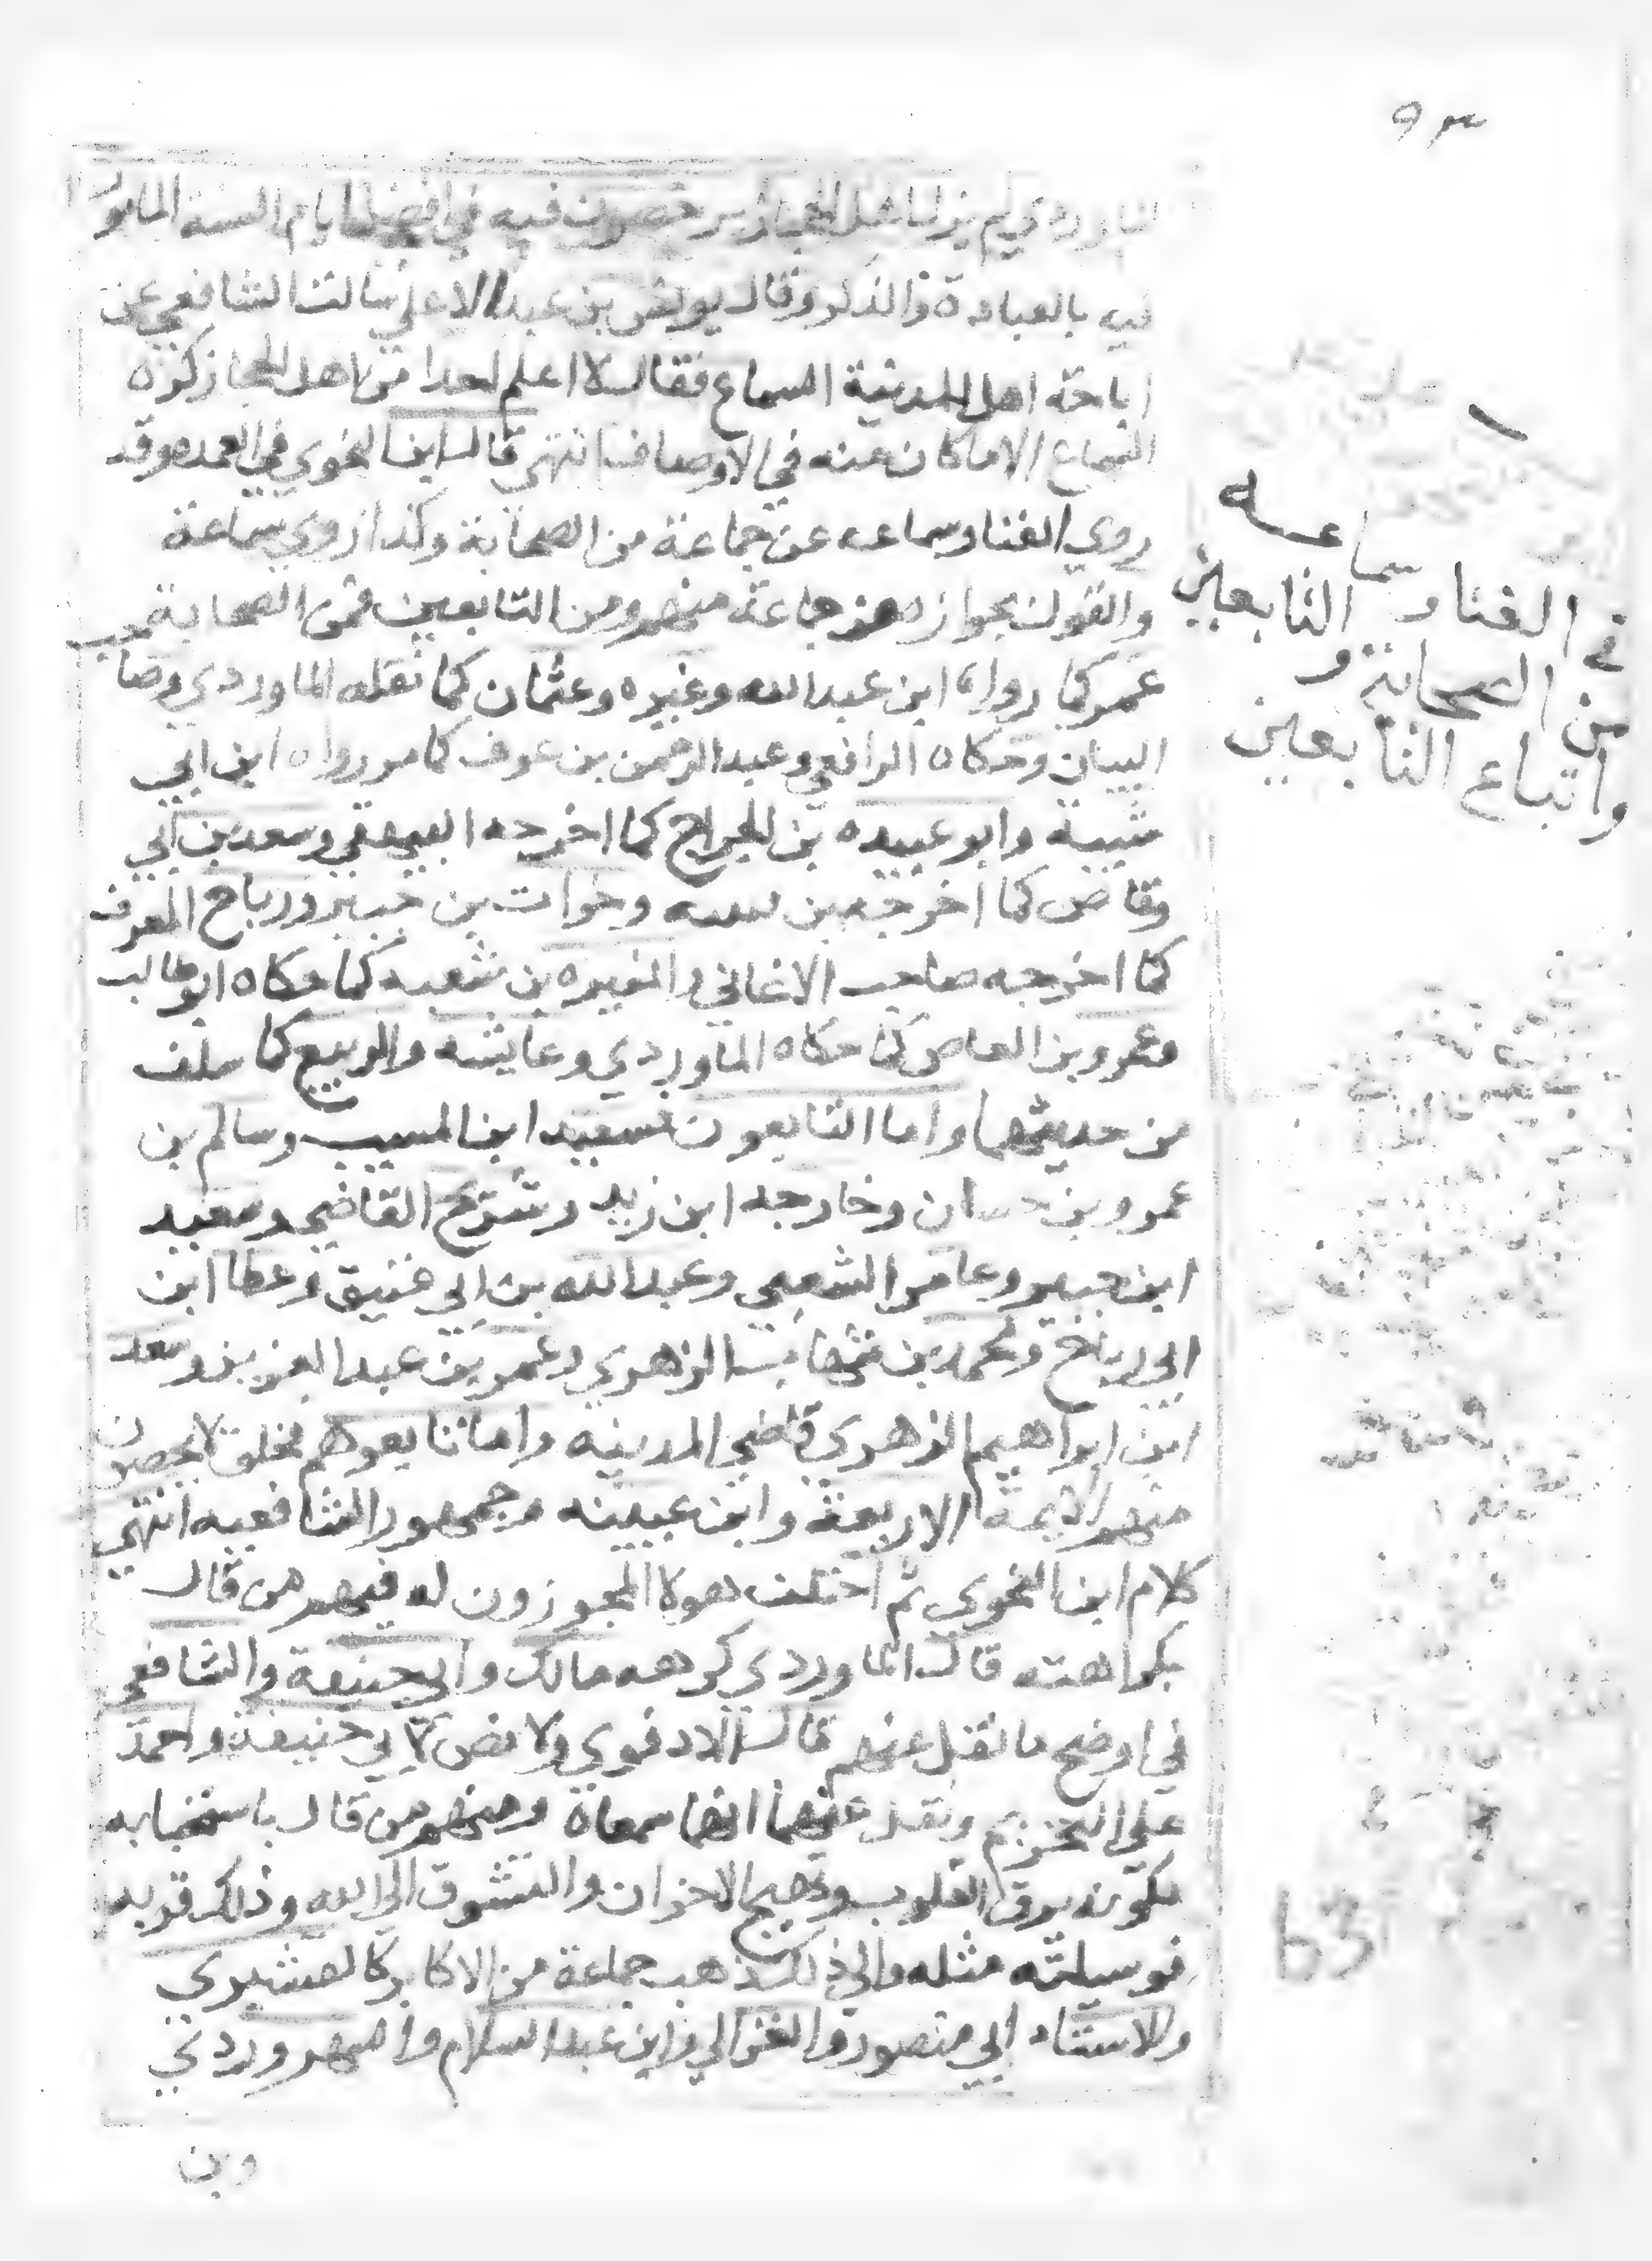 الماوردي لم يزل اهل الحجاز يرخصون فيه في افضل ايام السنة المامور
فيه بالعبادة والذكر وقال يونس بن عبد الاعلى سالت الشافعي عن
اباحة اهل المدينة السماع فقال لا اعلم احدا من اهل الحجاز كره
السماع الا ما كان منه في الاوصاف انتهى قال ابن النحوي في العمده وقد
روي الغنا وسماعه عن جماعة من الصحابة وكذا روي سماعة
والقول بجوازه عن جماعة منهم ومن التابعين فمن الصحابة
عمر كما رواه ابن عبد الله وغيره وعثمان كما نقله الماوردي وصا
البيان وحكاه الرافعي وعبد الرحمن بن عوف كما مر رواه ابن ابي
شيبة وابو عبيده بن الجراح كما اخرجه البيهقي وسعد بن ابي
وقاص كما اخرجه بن وخوات بن جبير ورباح المعرف
كما اخرجه صاحب الاغاني والمغيره بن شعبه كما حكاه ابو طالب
وعمرو بن العاص كما حكاه الماوردي وعايشه والربيع كما سلف
من حديثهما واما التابعون فسعيد ابن المسيب وسالم بن
عمرو بن حسان وخارجه ابن زيد وشريح القاضي وسعيد
ابن جبير وعامر الشعبي وعبد الله بن ابي عتيق وعطا ابن
ابي رباح ومحمد بن شهاب الزهري وعمر بن عبد العزيز وسعد
ابن ابراهيم الزهري قاضي المدينه واما تابعوهم فخلق لا يحصون
منهم الائمة الاربعة وابن عيينه وجمهور الشافعيه انتهى
كلام ابن النحوي ثم اختلف هولا المجوزون له فمنهم من قال
بكراهته قال الماوردي كرهه مالك وابي حنيفة والشافعي
في اوضح ما نقل عنهم قال الادفوي ولا نص لابي حنيفة واحمد
على التحريم ونقل عنهما انهما سمعاه ومنهم من قال باستحبابه
لكونه يرق القلوب ويهيج الاحزان والتشوق الى الله وذلك قربه
فوسيلته مثله والى ذلك ذهب جماعة من الاكابر كالقشيري
والاستاد ابي منصور والغزالي وابن عبد السلام والسهروردي
وبن
في الغنا وسماعه
من الصحابة والتابعين
واتباع التابعين
63